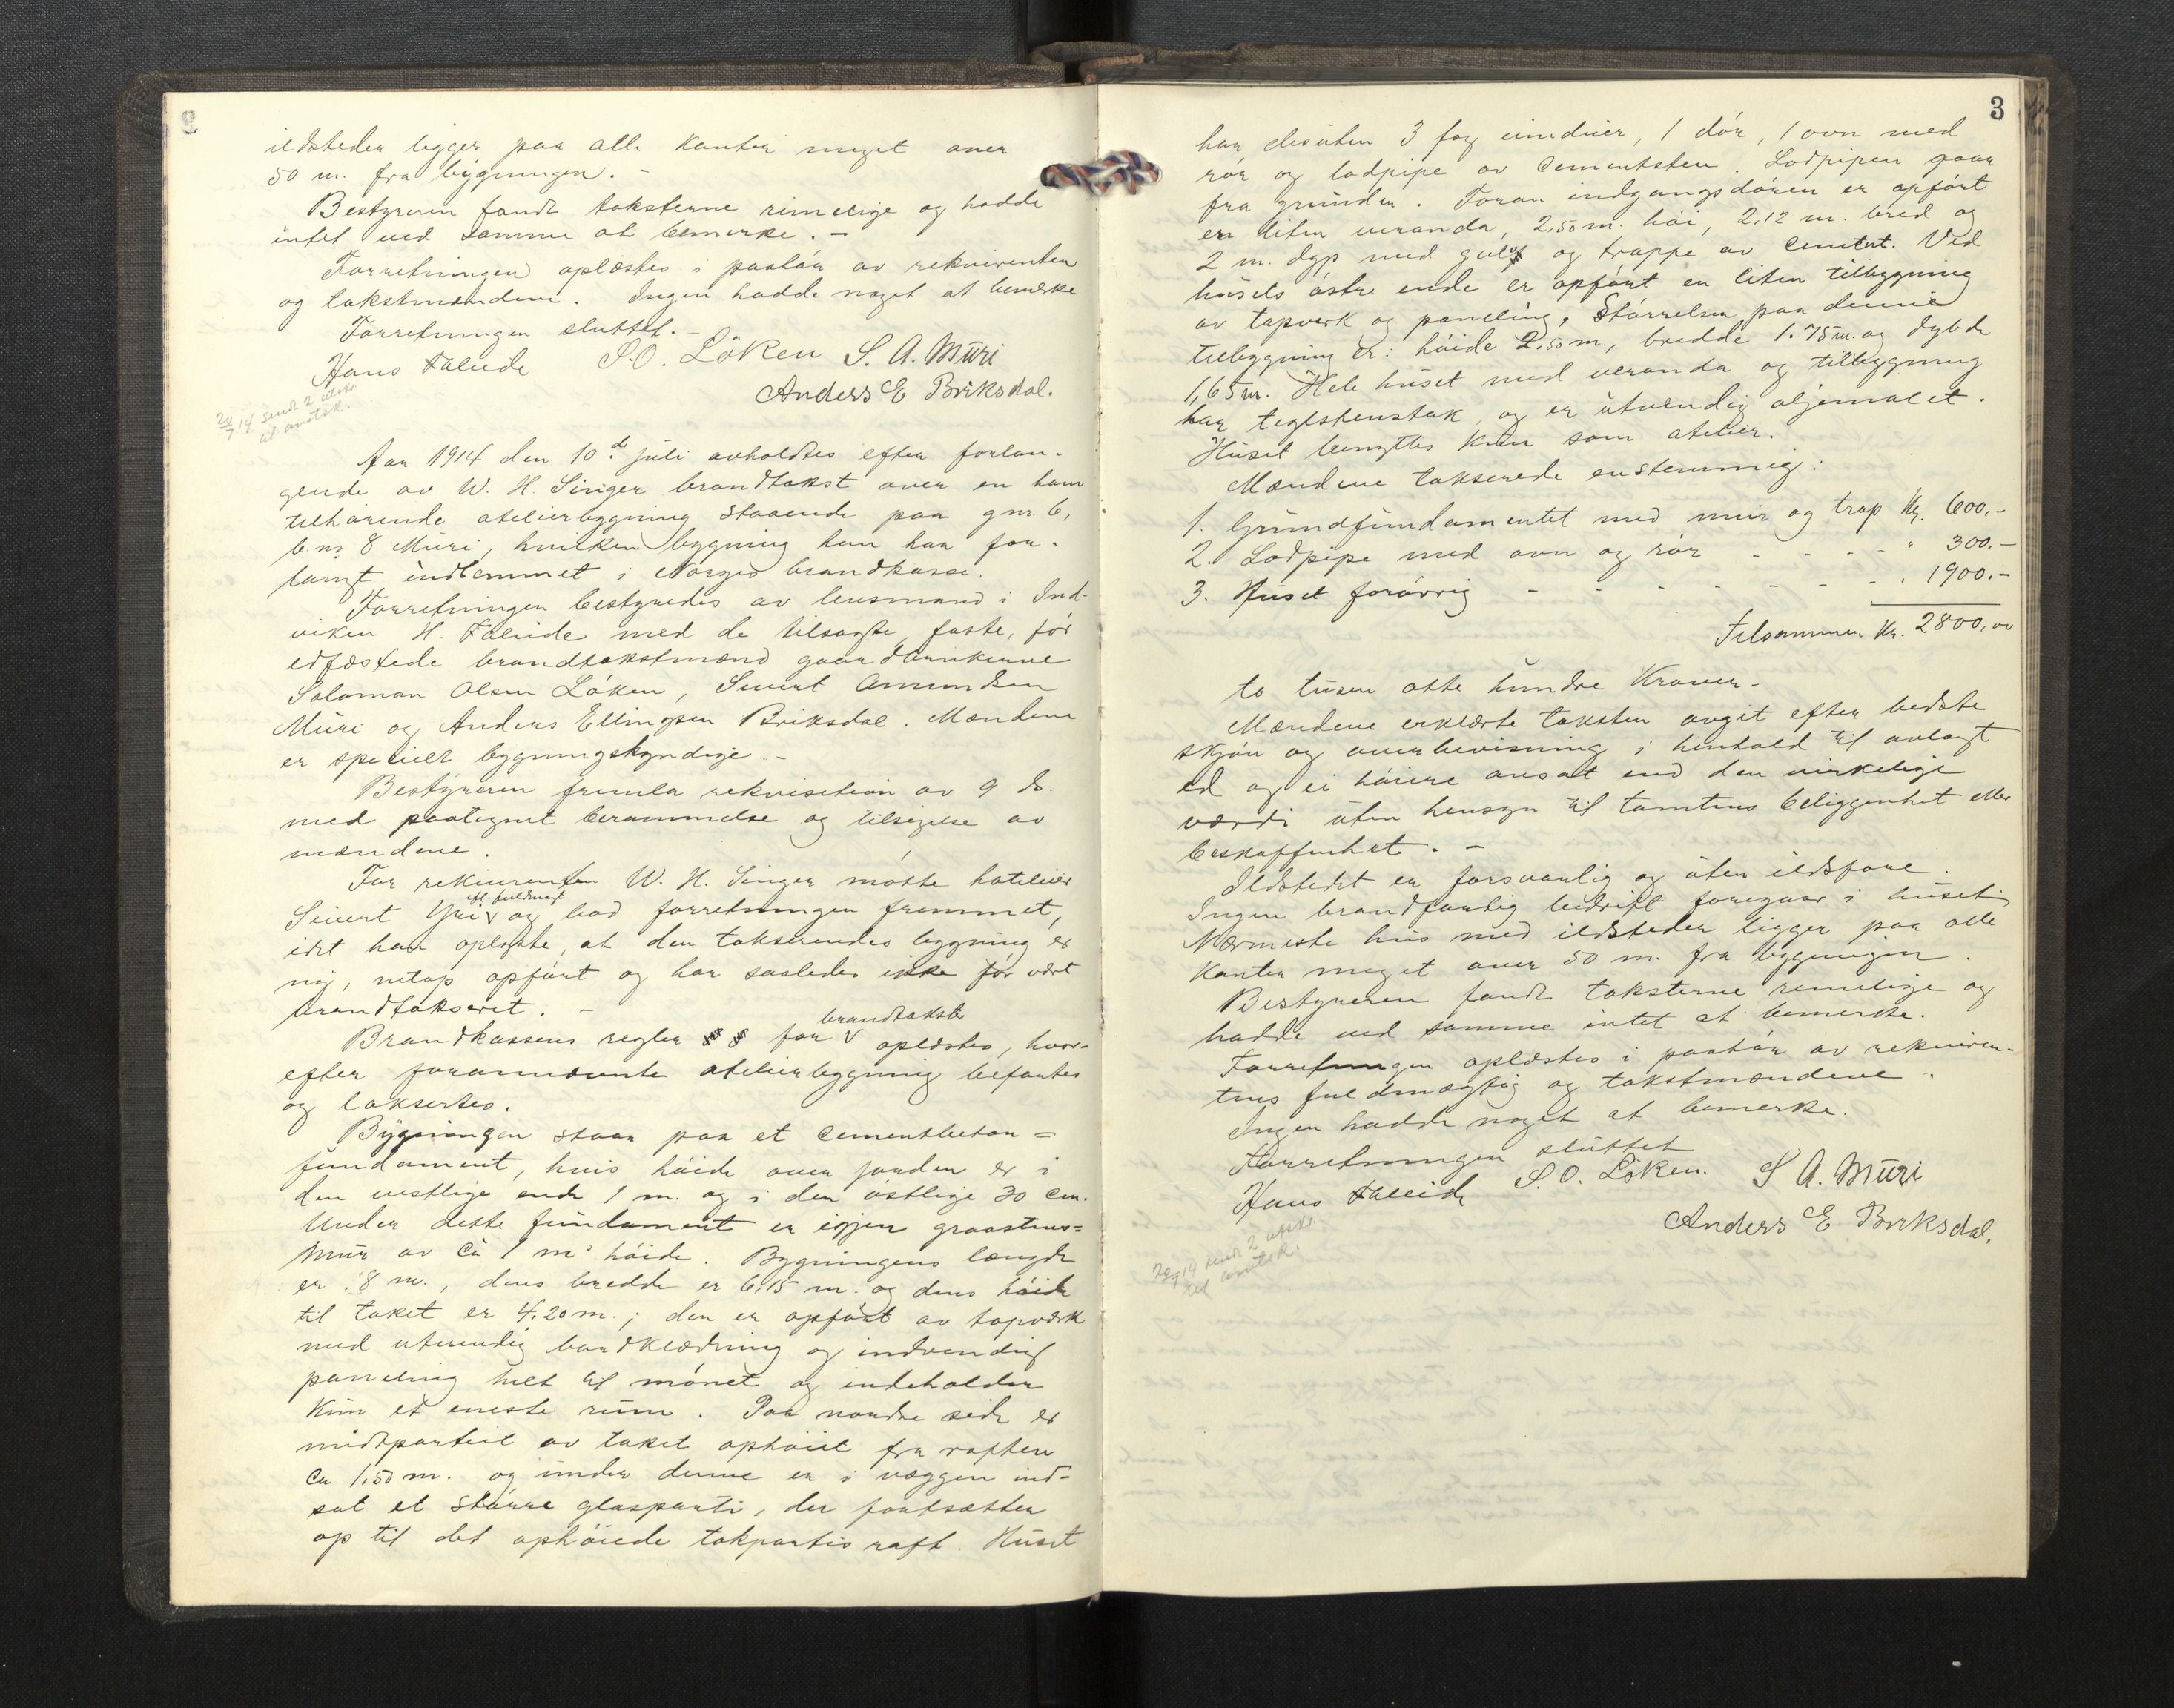 ildsteder ligger paa alle kanter meget over
50 m. fra bygningen. -
Bestyreren fandt taksterne rimelige og hadde
intet ved samme at bemerke. -
Forretningen oplæstes i paahör av rekvirenten
og takstmændene. Ingen hadde noget at bemerke.
Forretningen sluttet. -
Hans Faleide S.O. Löken S. A. Muri
Anders E Briksdal.
20/7 14 sendt 2 utskr.
til amtsk.
Aar 1914 den 10de juli avholdtes efter forlan-
gende av W. H. Singer brandtakst over en ham
tilhörende atelierbygning staaende paa gnr. 6,
b.nr 8 Muri, hvilken bygning han har for-
langt indlemmet i Norges brandkasse.
Forretningen bestyredes av lensmand i Ind-
viken H. Faleide med de tilsagte, faste, för
edfæstede brandtakstmænd gaardbrukerne
Salomon Olsen Löken, Sivert Amundsen
Muri og Anders Ellingsen Briksdal. Mændene
er specielt bygningskyndige. -
Bestyreren fremla rekvisition av 9 ds.
med paategnet berammelse og tilsigelse av
mændene.
For rekvirenten W. H. Singer mötte hotelier
efl. fuldmagt
Sivert Yri v og bad forretningen fremmet,
idet han oplyste, at den takserendes bygning er
ny, netop opfört og har saaledes ikke för vært
brandtaksert. -
brandtakster
Brandkassens regler §§ for v oplæstes, hvor-
efter forannævnte atelierbygning befartes
og taksertes.
Bygningen staar paa et cementbeton=
fundament, hvis höide over jorden er i
den vestlige ende 1 m. og i den östlige 30 cm.
Under dette fundament er igjen graastens=
mur av ca 1 m's höide. Bygningens længde
er 8 m., dens bredde er 6,15 m. og dens höide
til taket er 4.20 m.; den er opfört av tapverk
med utvendig bordklædning og indvendig
paneling helt til mönet og indeholder
kun et eneste rum. Paa nordre side er
midtpartiet av taket ophöiet fra raften
ca 1,50 m. og under denne er i væggen ind-
sat et större glasparti, der fortsætter
op til det ophöiede takpartis raft. Huset
3
har desuten 3 fag vinduer, 1 dör, 1 ovn med
rör og lodpipe av cementsten. Lodpipen gaar
fra grunden. Foran indgangsdören er opfört
en liten veranda, 2,50 m. höi, 2,12 m. bred og
2 m. dyp med gulv og trappe av cement. Ved
husets östre ende er opfört en liten tilbygning
av tapverk og paneling. Störrelsen paa denne
tilbygning er: höide 2.50 m., bredde 1.75 m. og dybde
1,65 m. Hele huset med veranda og tilbygning
har teglstenstak og er utvendig oljemalet.
Huset benyttes kun som atelier.
Mændene takserede enstemmig:
1. Grundfundamentet med mur og trap Kr. 600.-
2. Lodpipe med ovn og rör - - - - " 300.-
3. Huset forövrig - - - - - - " 1900.-
Tilsammen Kr. 2800,00
to tusen otte hundre Kroner.
Mændene erklærte taksten avgit efter bedste
skjön og overbevisning i henhold til avlagt
ed og ei höiere ansat end den virkelige
værdi uten hensyn til tomtens beliggenhet eller
beskaffenhet. -
Ildstedet er forsvarlig og uten ildsfare.
Ingen brandfarlig bedrift foregaar i huset.
Nærmeste hus med ildsteder ligger paa alle
kanter meget over 50 m. fra bygningen.
Bestyreren fandt taksterne rimelige og
hadde ved samme intet at bemerke.
Forretningen oplæstes i paahör av rekviren-
tens fuldmægtig og takstmændene.
Ingen hadde noget at bemerke.
Forretningen sluttet
Hans Faleide S. O. Löken. S A. Muri
Anders E Briksdal.
20/7 14 sendt 2 utskr.
til amtsk.